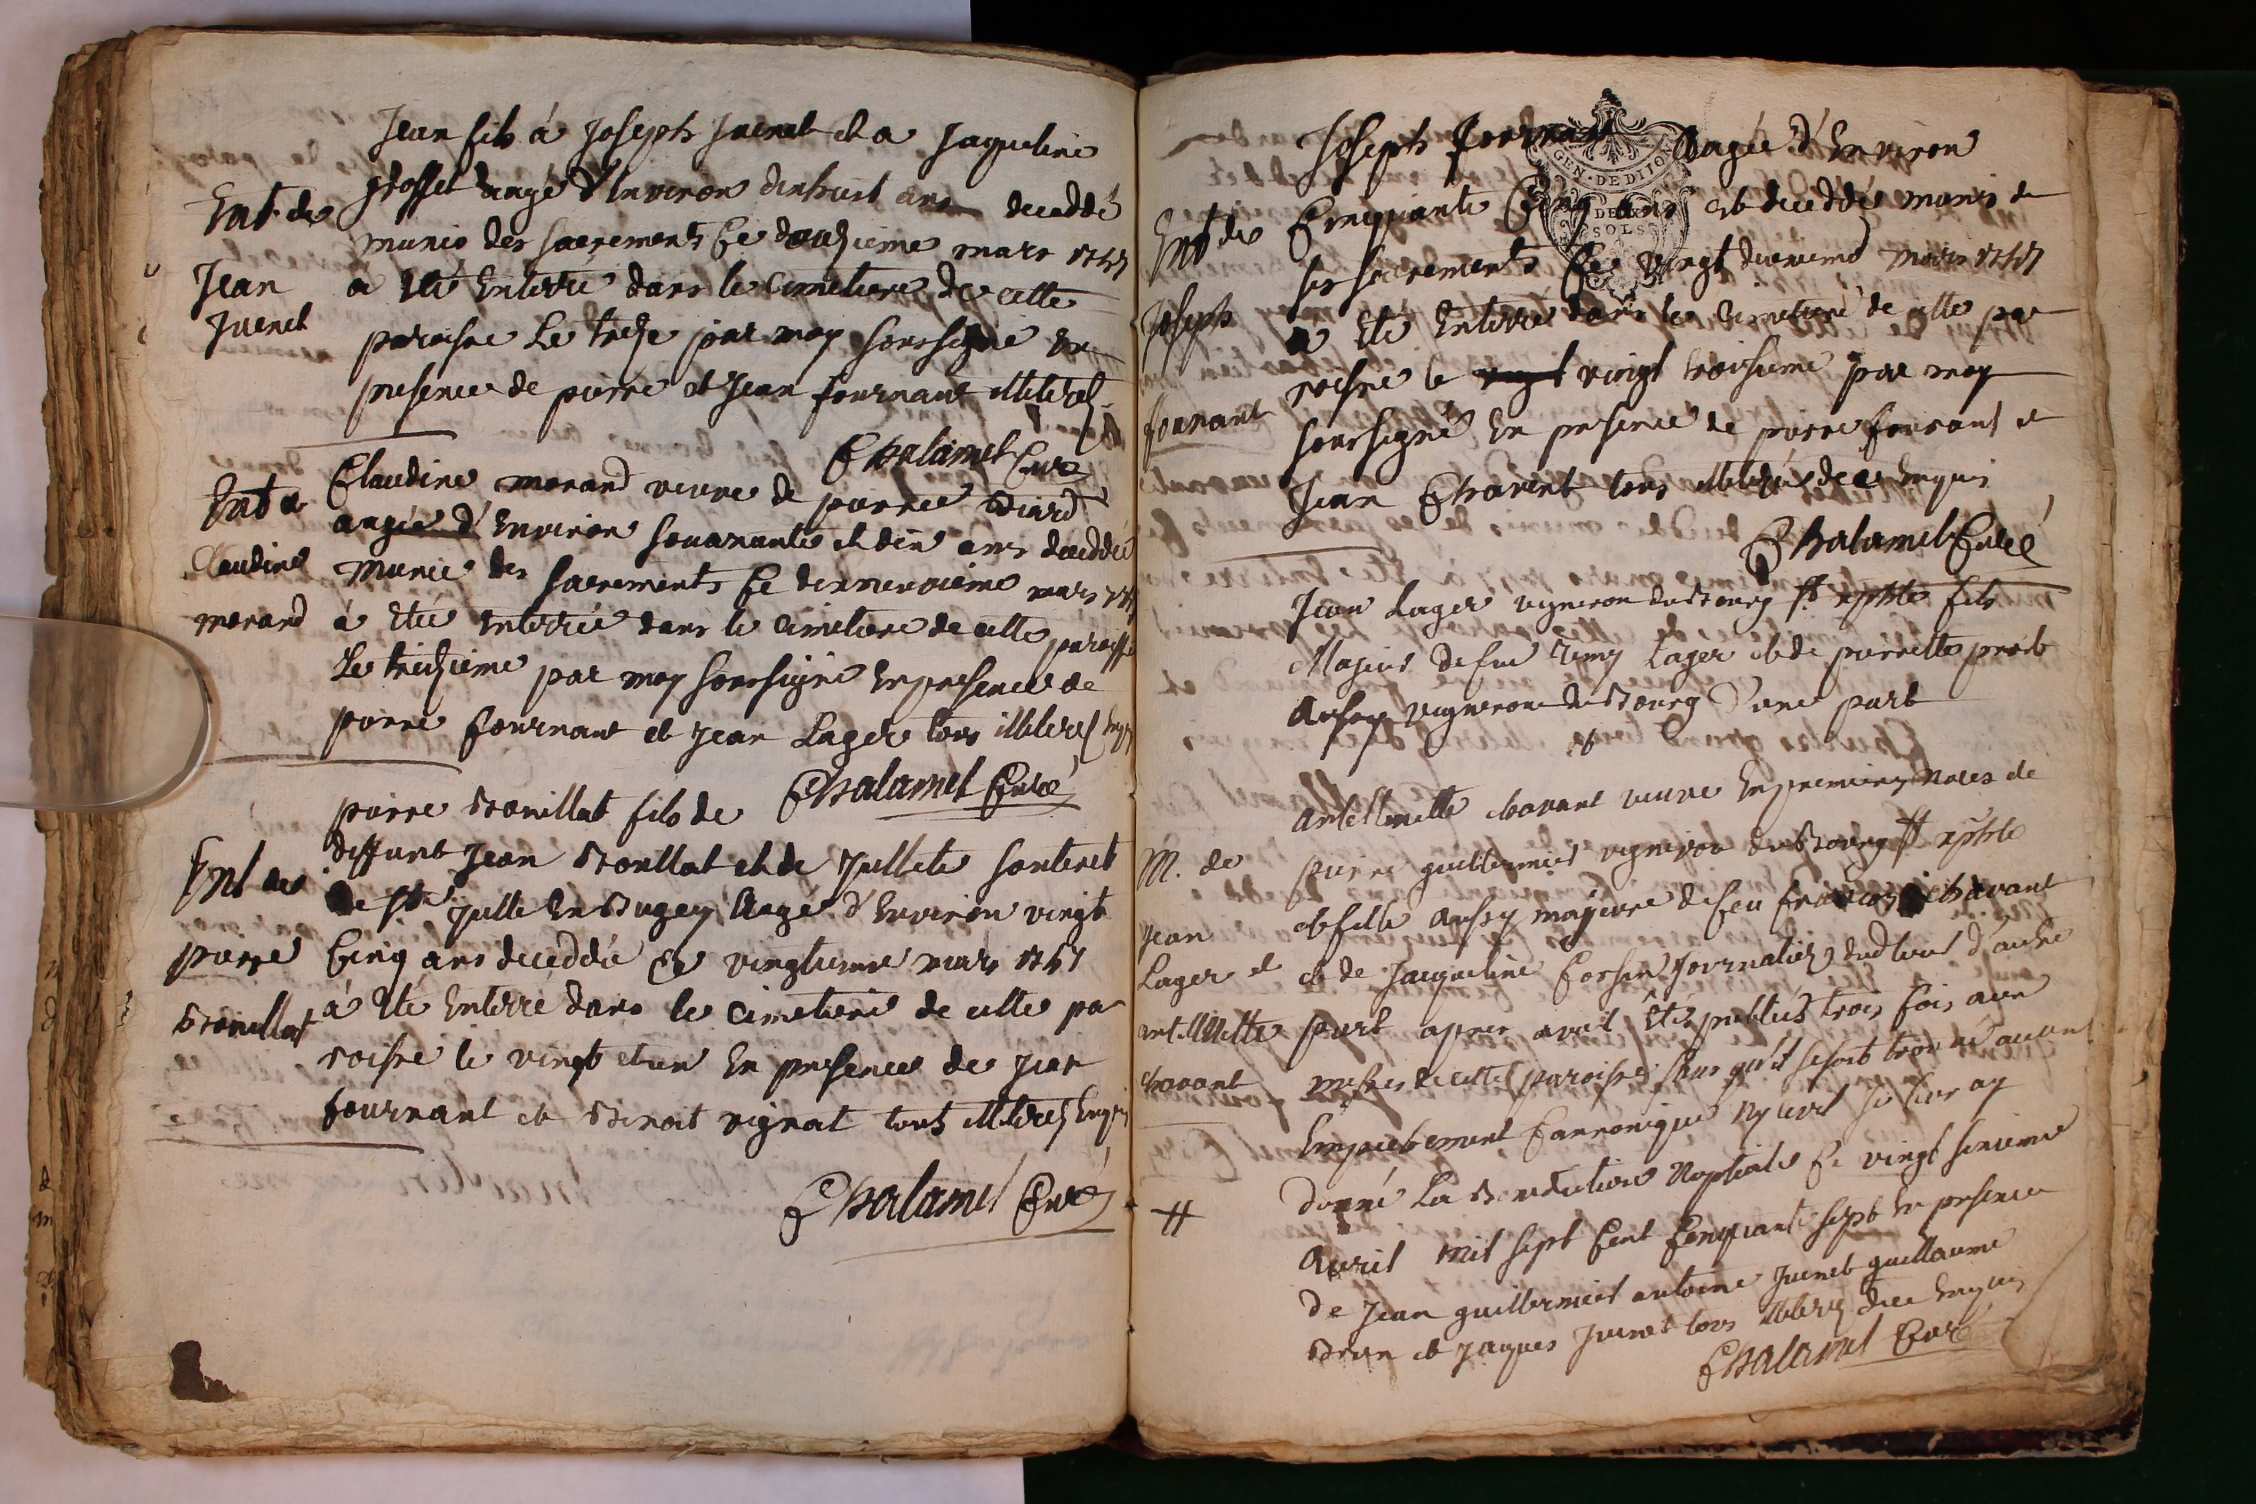 Jean fils á Joseph Juenet et a Jaqueline
Ent. de
Jean
Juenet
angé d'Environ dixhuit ans deceddé
munis des sacrements Ce douzieme mars 1757
a Eté Enterré dans le Cimetiere de cette
paroisse Le treze par moy soussigné En
presence de pierre et Jean fournant illiterez
Chalamel Curé
Ent de
Claudine
morand
Claudine morand veuve de pierre
angée d'Environ souxante et dix ans deceddée
munie des sacrements Ce mars
á Eté Enterrée dans le Cimetiere de cette paroisse
Le par moy soussigné En presence de
pierre fournant et Jean Lager tous illiterez Enquis
Chalamel Curé
Ent de
pierre
Bonillat
pierre Bonillat fils de
deffunt Jean Bonillat et de Jullete
de Ste Julle En Bugey Angé d'Environ vingt
Cinq ans deceddé Ce vingtieme mars 1757
á Eté Enterré dans le Cimetiere de cette pa
roisse le vingt et un En presence de Jean
fournant et Benoit vignat tous illiterez Enquis
Chalamel Curé
GEN. DE DIJON
DEUX
SOLS
Ent de
Joseph
fournant
Joseph fournant Aagée d'Environ
Cinquante Cinq ans est deceddé munis de
ses sacrements Ce vingt mars 1757
a Eté Enterré dans le Cimetiere de cette pa
roisse le vingt troisieme par moy
soussigné En presence de pierre fournant et
Jean Chavent tous illiterés de ce Enquis
Chalamel Curé
M. de
Jean
Lager et
anthelmette
chavant
#
Jean Lager vigneron du Bourg St fils
Majeur de feu Remy Lager et de pierrette
Aussy vigneron du Bourg d'une part
et
Anthelmette chavant veuve En premiere Noces de
pierre guillermiet vigneron du Bourg #
et fille Aussy majeure de feu françois chavant
et de Jacqueline Cossin Journaliers dud lieu d'autre
part apres avoir Etés publiés trois fois aux
messes de cette paroisse sans qu'il se soit trouvé aucun
Empechement Cannonique Ny Civil Je leur ay
donné La Benediction Nuptiale Ce vingt sixieme
Avril mil sept Cent Cinquante sept En presence
de Jean guillermiet antoine Juenet guillaume
Brun et Jaques Juenet tous illiterez de ce Enquis
Chalamel Curé